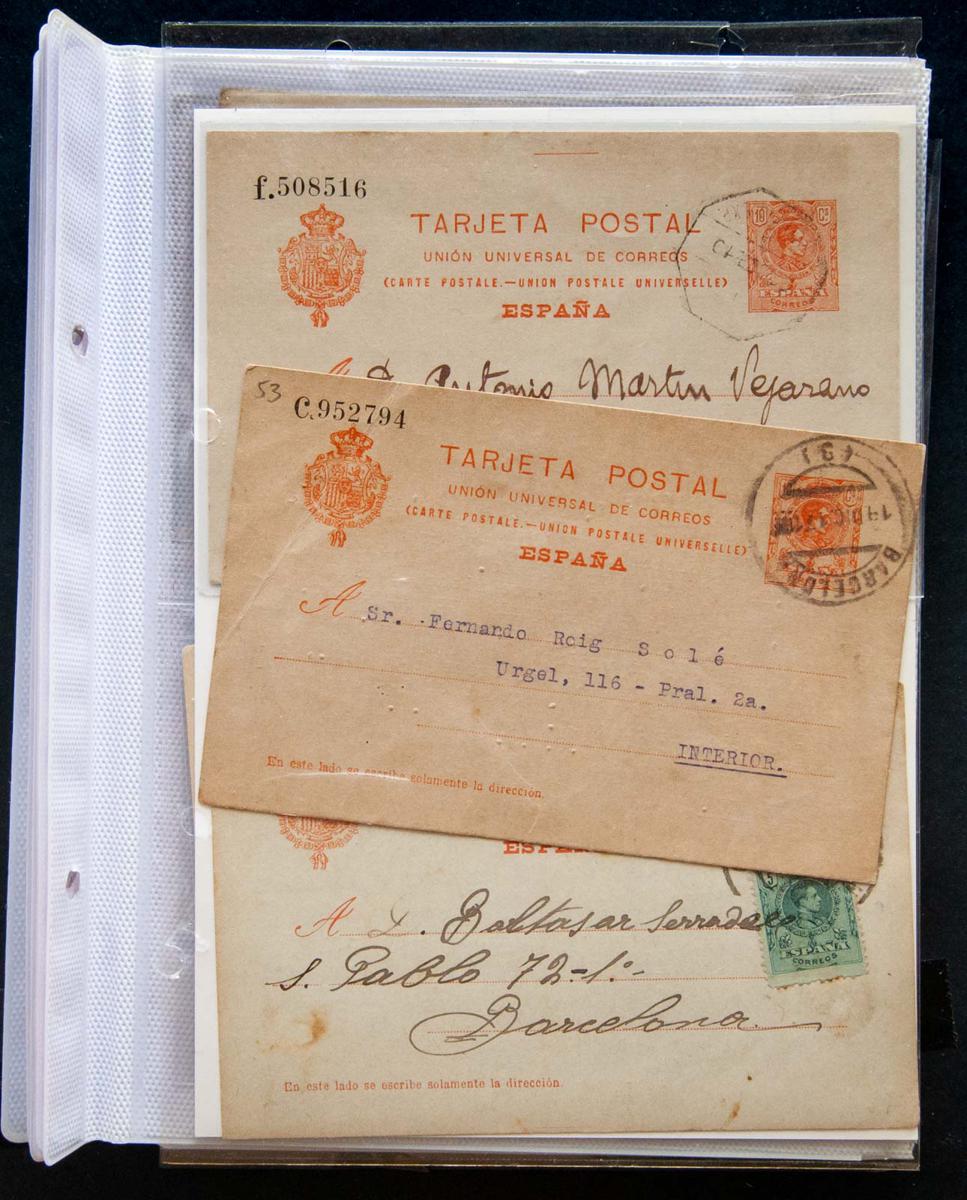 f.508516
TARJETA POSTAL
UNIÓN UNIVERSAL DE CORREOS
(CARTE POSTALE.—UNION POSTALE UNIVERSELLE)
ESPAÑA
10 Cs
ESPAÑA
CORREOS
A D. Antonio Martin Vejarano
53
C.952794
TARJETA POSTAL
UNIÓN UNIVERSAL DE CORREOS
(CARTE POSTALE.—UNION POSTALE UNIVERSELLE)
ESPAÑA
(3)
BARCELONA
A Sr. Fernando Roig Solé
Urgel, 116 - Pral. 2a.
INTERIOR.
En este lado se escribe solamente la dirección.
ESPAÑA
A D. Baltasar Serradell
S. Pablo 72-1º-
Barcelona
ESPAÑA
CORREOS
En este lado se escribe solamente la dirección.